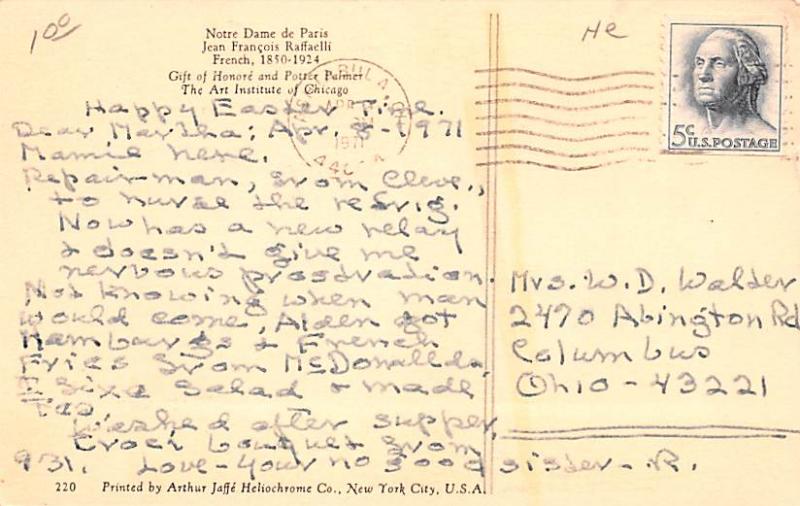 1.00
He
Notre Dame de Paris
Jean François Raffaelli
French, 1850-1924
Gift of Honoré and Potter Palmer
The Art Institute of Chicago
5c U.S. POSTAGE
APR
1971
Happy Easter Time.
Dear Martha: Apr. 8-1971
Mamie here.
Repair-man, from Cleve.,
to nurse the refrig.
Now has a new relay
& doesn't give me
nervous prosdration.
Not knowing when man
would come, Alden got
Hamburgs & French
Fries from McDonallds,
I fixe salad & made
Tea.
Washed after supper.
Croci bouquet from
931. Love - Your no good sister - R.
Mrs. W. D. Walder
2470 Abington Rd
Columbus
Ohio - 43221
220 Printed by Arthur Jaffé Heliochrome Co., New York City, U.S.A.